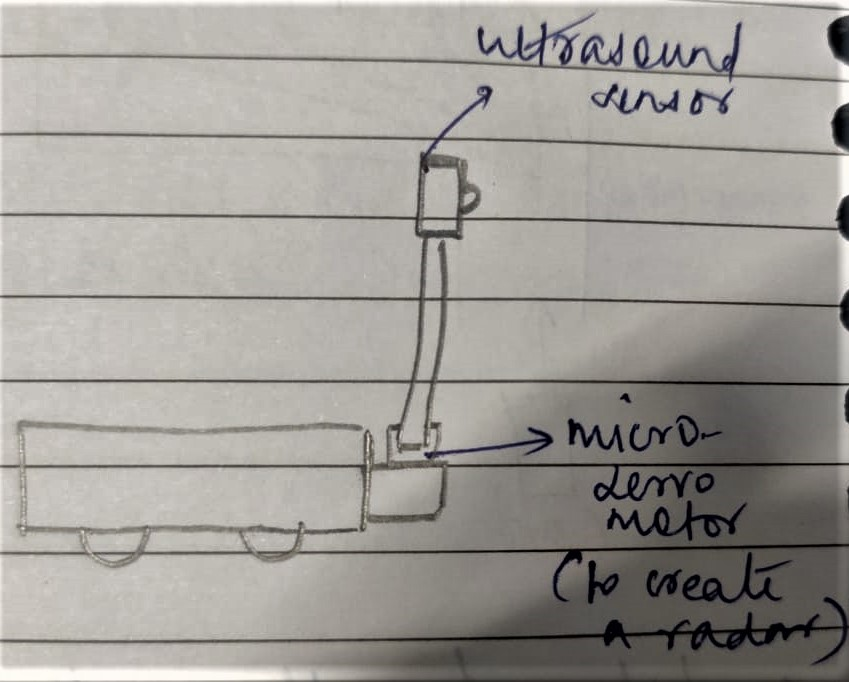 ultrasound
sensor
micro-
servo
motor
(to create
a radar)